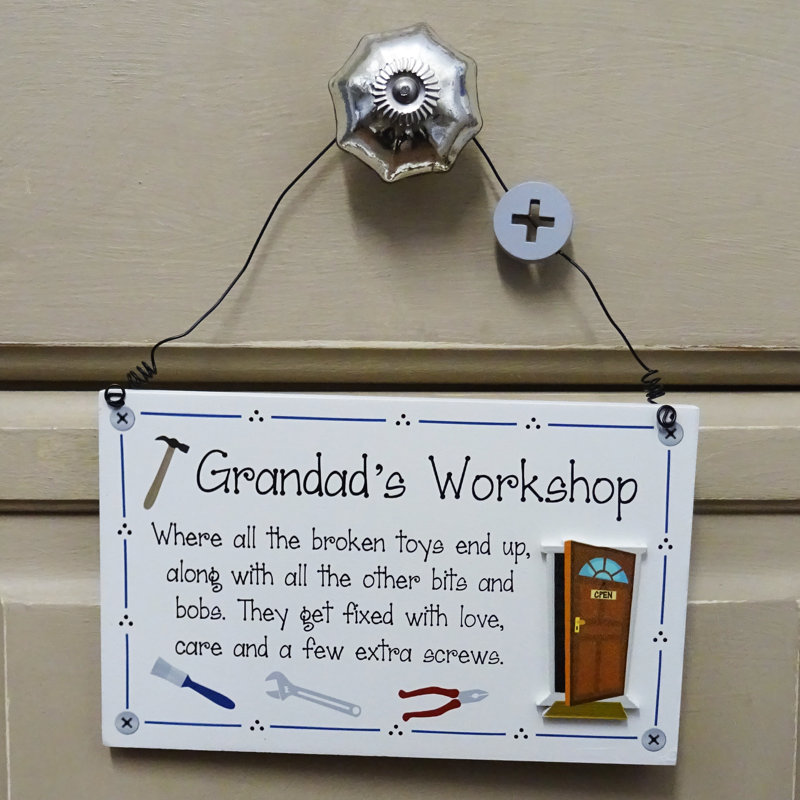 Grandad's Workshop
Where all the broken toys end up,
along with all the other bits and
bobs. They get fixed with love,
care and a few extra screws.
OPEN